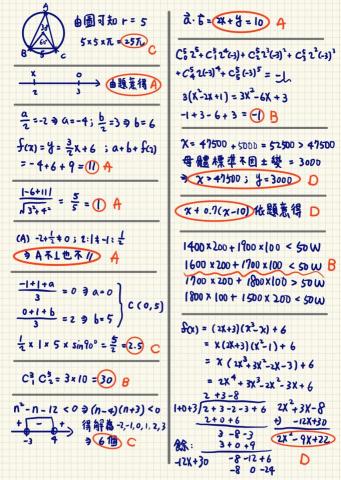 A
30°
60°
B 5 C
由圖可知 r = 5
5×5×π = 25π
C
x 0
-2 3
由題意得 A
a/2 = -2 ⇒ a = -4 ; b/2 = 3 ⇒ b = 6
f(x) = y = 3/2 x + 6 ; a + b + f(2)
= -4 + 6 + 9 = 11 A
|-6+11| / √(3²+4²) = 5/5 = 1 A
⇒ A不⊥也不// A
(-1+1+a)/3 = 0 ⇒ a = 0
(0+1+b)/3 = 2 ⇒ b = 5
C(0,5)
1/2 × 1 × 5 × sin90° = 5/2 = 2.5 C
= 3×10 = 30 B
n² - n - 12 < 0 ⇒ (n-4)(n+3) < 0
+ - +
-3 4
得解為 -2,-1,0,1,2,3
⇒ 6個 C
= 2x + y = 10 A
C⁵₀2⁵ + C⁵₁2⁴(-3) + C⁵₂2³(-3)² + C⁵₃2²(-3)³
+ C⁵₄2(-3)⁴ + C⁵₅(-3)⁵ = -1
3(x²-2x+1) = 3x²-6x+3
-1+3-6+3 = -1 B
x = 47500 + 5000 = 52500 > 47500
母體標準不因±變 = 3000
⇒ x > 47500 ; y = 3000 D
x + 0.7(x-10) 依題意得 D
1400×200 + 1900×100 < 50W
1600×200 + 1700×100 < 50W B
1700×200 + 1800×100 > 50W
1800×100 + 1500×200 < 50W
f(x) = (2x+3)(x³-x) + 6
= x(2x+3)(x²-1) + 6
= x(2x³+3x²-2x-3) + 6
= 2x⁴+3x³-2x²-3x+6
2+3-8
1+0+3 2+3-2-3+6
2+0+6
3-8-3
3+0+9
-8-12+6
-8 0-24
餘:
-12x+30
2x²+3x-8
+) -12x+30
2x²-9x+22
D